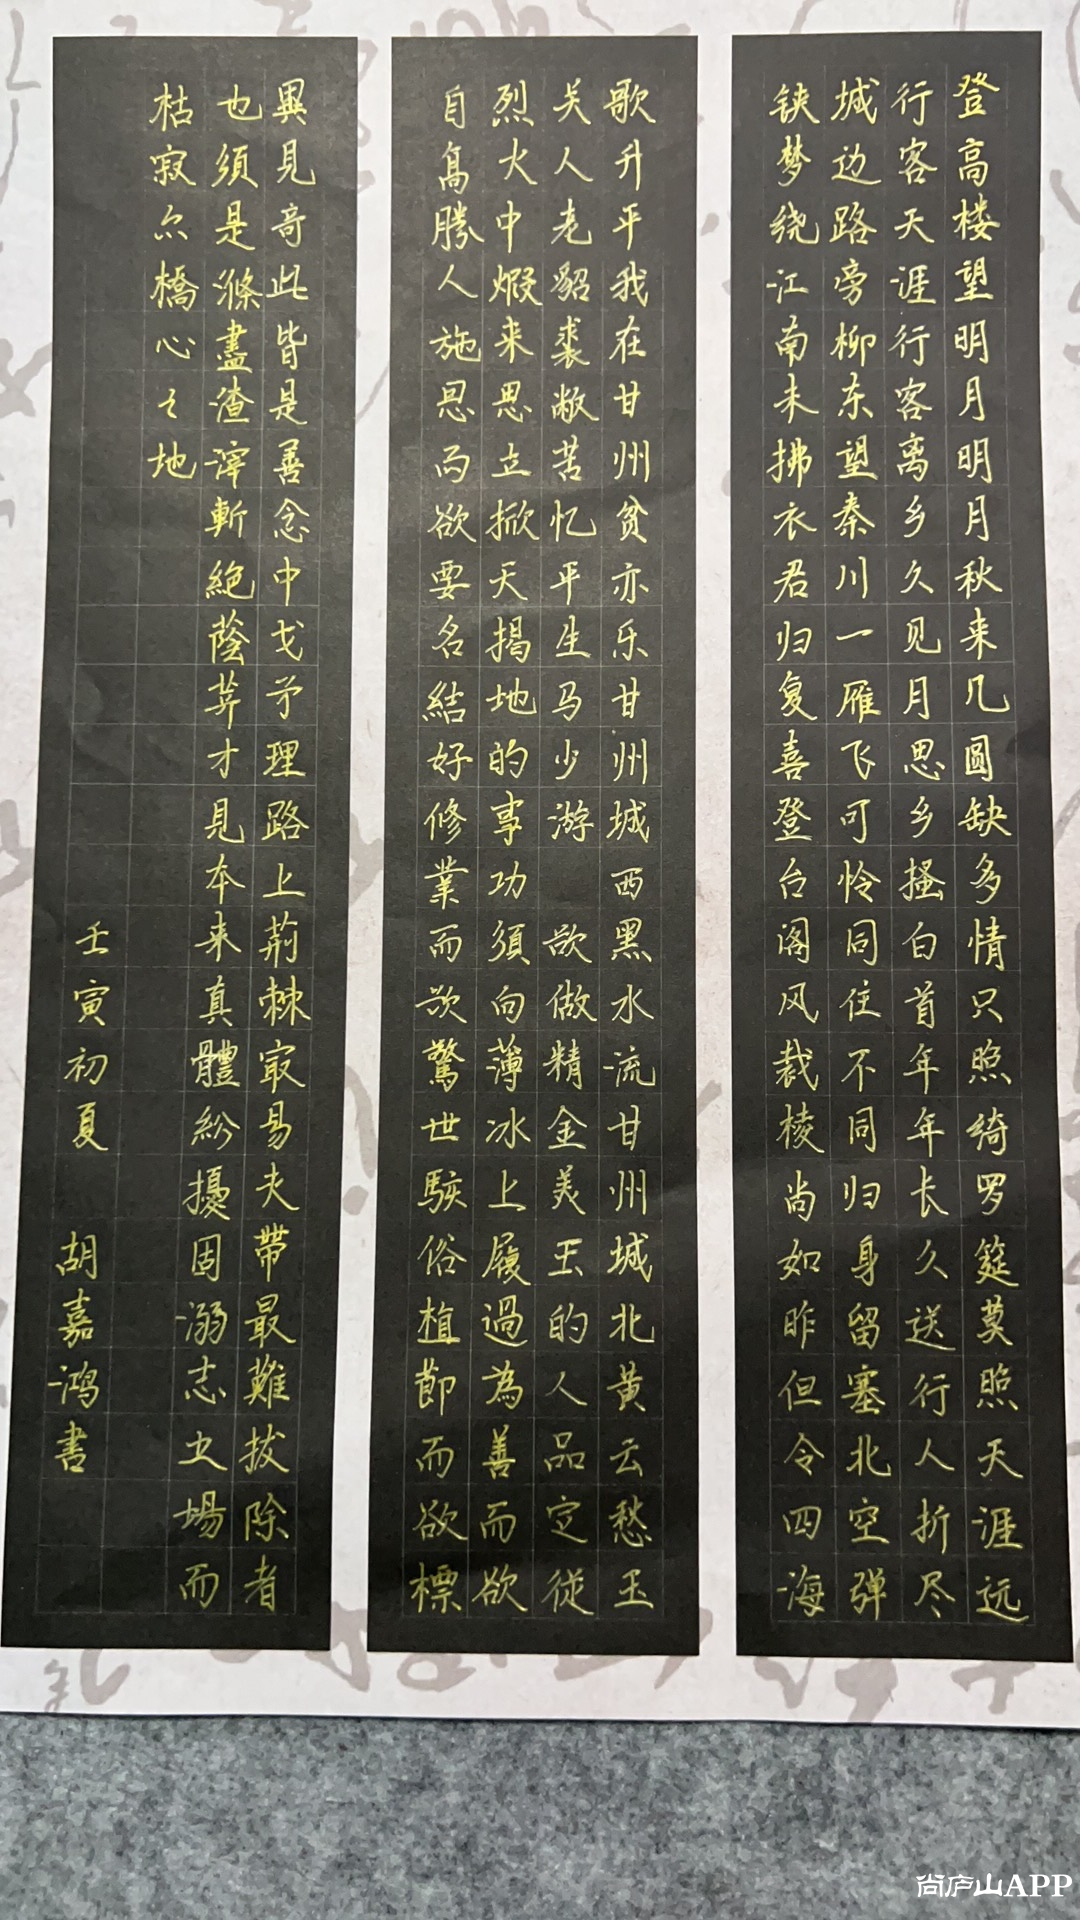 登高楼望明月明月秋来几圆缺多情只照绮罗筵莫照天涯远
行客天涯行客离乡久见月思乡搔白首年年长久送行人折尽
城边路旁柳东望秦川一雁飞可怜同住不同归身留塞北空弹
铗梦绕江南未拂衣君归复喜登台阁风裁棱尚如昨但令四海
歌升平我在甘州贫亦乐甘州城西黑水流甘州城北黄云愁玉
关人老貂裘敝苦忆平生马少游 欲做精金美玉的人品定從
烈火中煅来思立掀天揭地的事功須向薄冰上履過為善而欲
自高勝人施恩而欲要名結好修業而欲驚世駭俗植節而欲標
異見奇此皆是善念中戈矛理路上荊棘最易夾帶最難拔除者
也須是滌盡渣滓斬絕蔭芽才見本来真體紛擾固溺志之場而
枯寂亦槁心之地
壬寅初夏 胡嘉鸿書
尚庐山APP